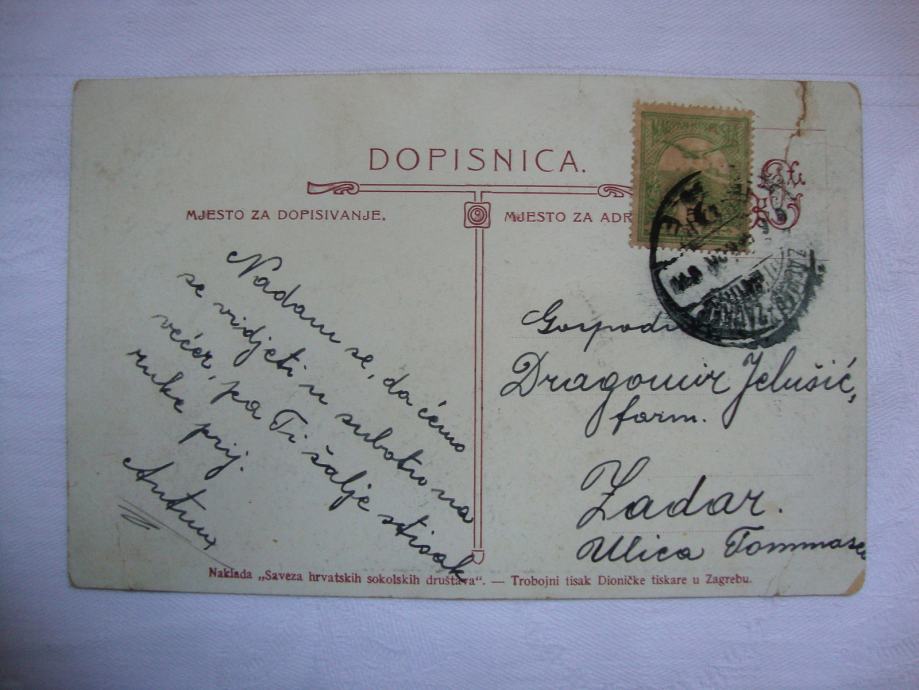 DOPISNICA.
MJESTO ZA DOPISIVANJE.
MJESTO ZA ADR
Nadam se, da ćemo
se vidjeti u subotu na
večer, pa Ti šalje stisak
ruke prij.
Antun
Gospodi
Dragomir Jelušić,
farm.
Zadar.
Ulica Tommase
Naklada „Saveza hrvatskih sokolskih društava“. — Trobojni tisak Dioničke tiskare u Zagrebu.